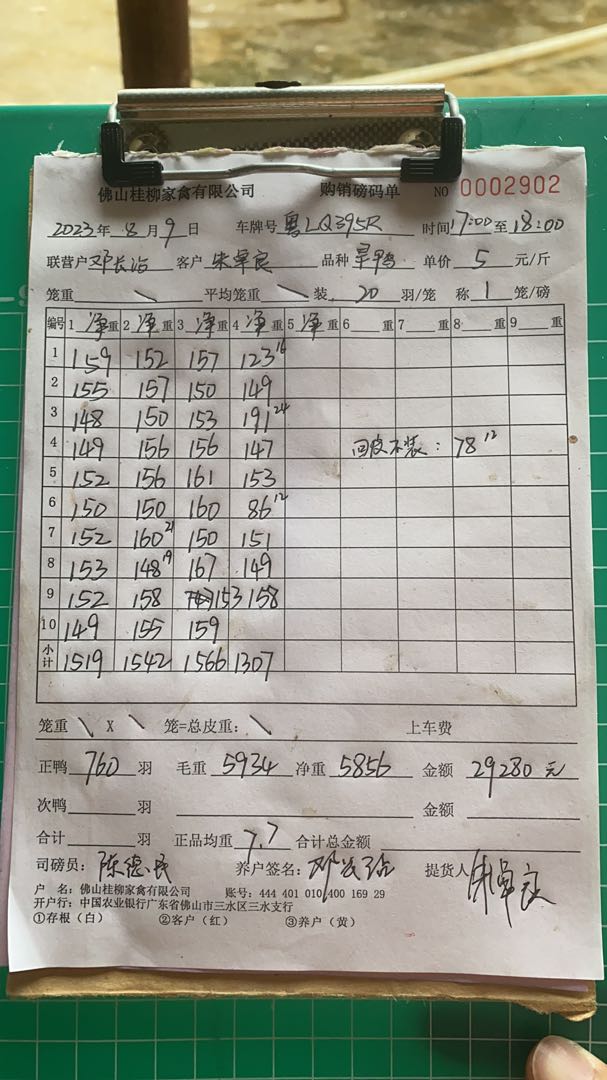 佛山桂柳家禽有限公司 购销磅码单 NO 0002902
2023年 8月 9日 车牌号 粤LQ395R 时间 17:00至 18:00
联营户 邓长治 客户 朱卓良 品种 旱鸭 单价 5 元/斤
笼重 \ 平均笼重 \ 装 20 羽/笼 称 1 笼/磅
编号 1 净重 2 净重 3 净重 4 净重 5 净重 6 重 7 重 8 重 9 重
1 159 152 157 123 16
2 155 157 150 149
3 148 150 153 191 24
4 149 156 156 147 回皮不装：78 12
5 152 156 161 153
6 150 150 160 86 12
7 152 160 21 150 151
8 153 148 19 167 149
9 152 158 153 158
10 149 155 159
小计 1519 1542 1566 1307
笼重 \ X \ 笼=总皮重： \ 上车费
正鸭 760 羽 毛重 5934 净重 5856 金额 29280 元
次鸭 羽 金额
合计 羽 正品均重 7.7 合计总金额
司磅员： 陈德民 养户签名： 邓长治 提货人 朱卓良
户 名：佛山桂柳家禽有限公司 账号：444 401 010 400 169 29
开户行：中国农业银行广东省佛山市三水区三水支行
①存根（白） ②客户（红） ③养户（黄）